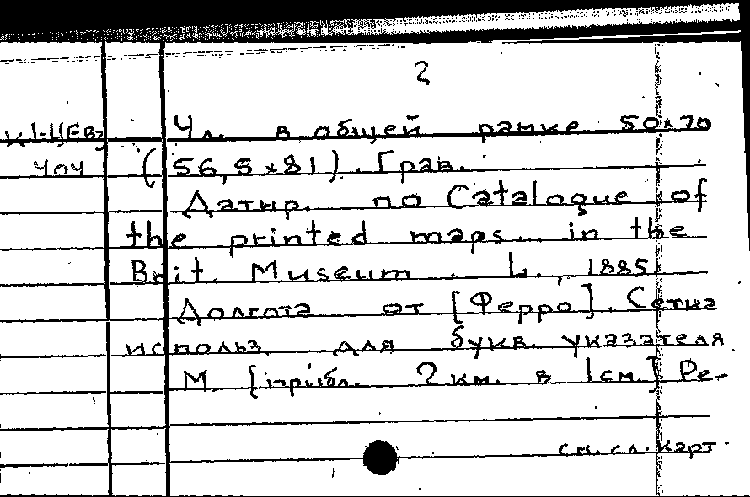 2
К 1-Ц/Ев
4 л. в общей рамке 50x70
4/04
(56,5x81). Грав.
Датир. по Catalogue of
the printed maps... in the
Brit. Museum. L., 1885.
Долгота от [Ферро]. Сетка
использ. для букв. указателя
М. [прибл. 2 км. в 1 см.] Ре-
см. сл. карт.